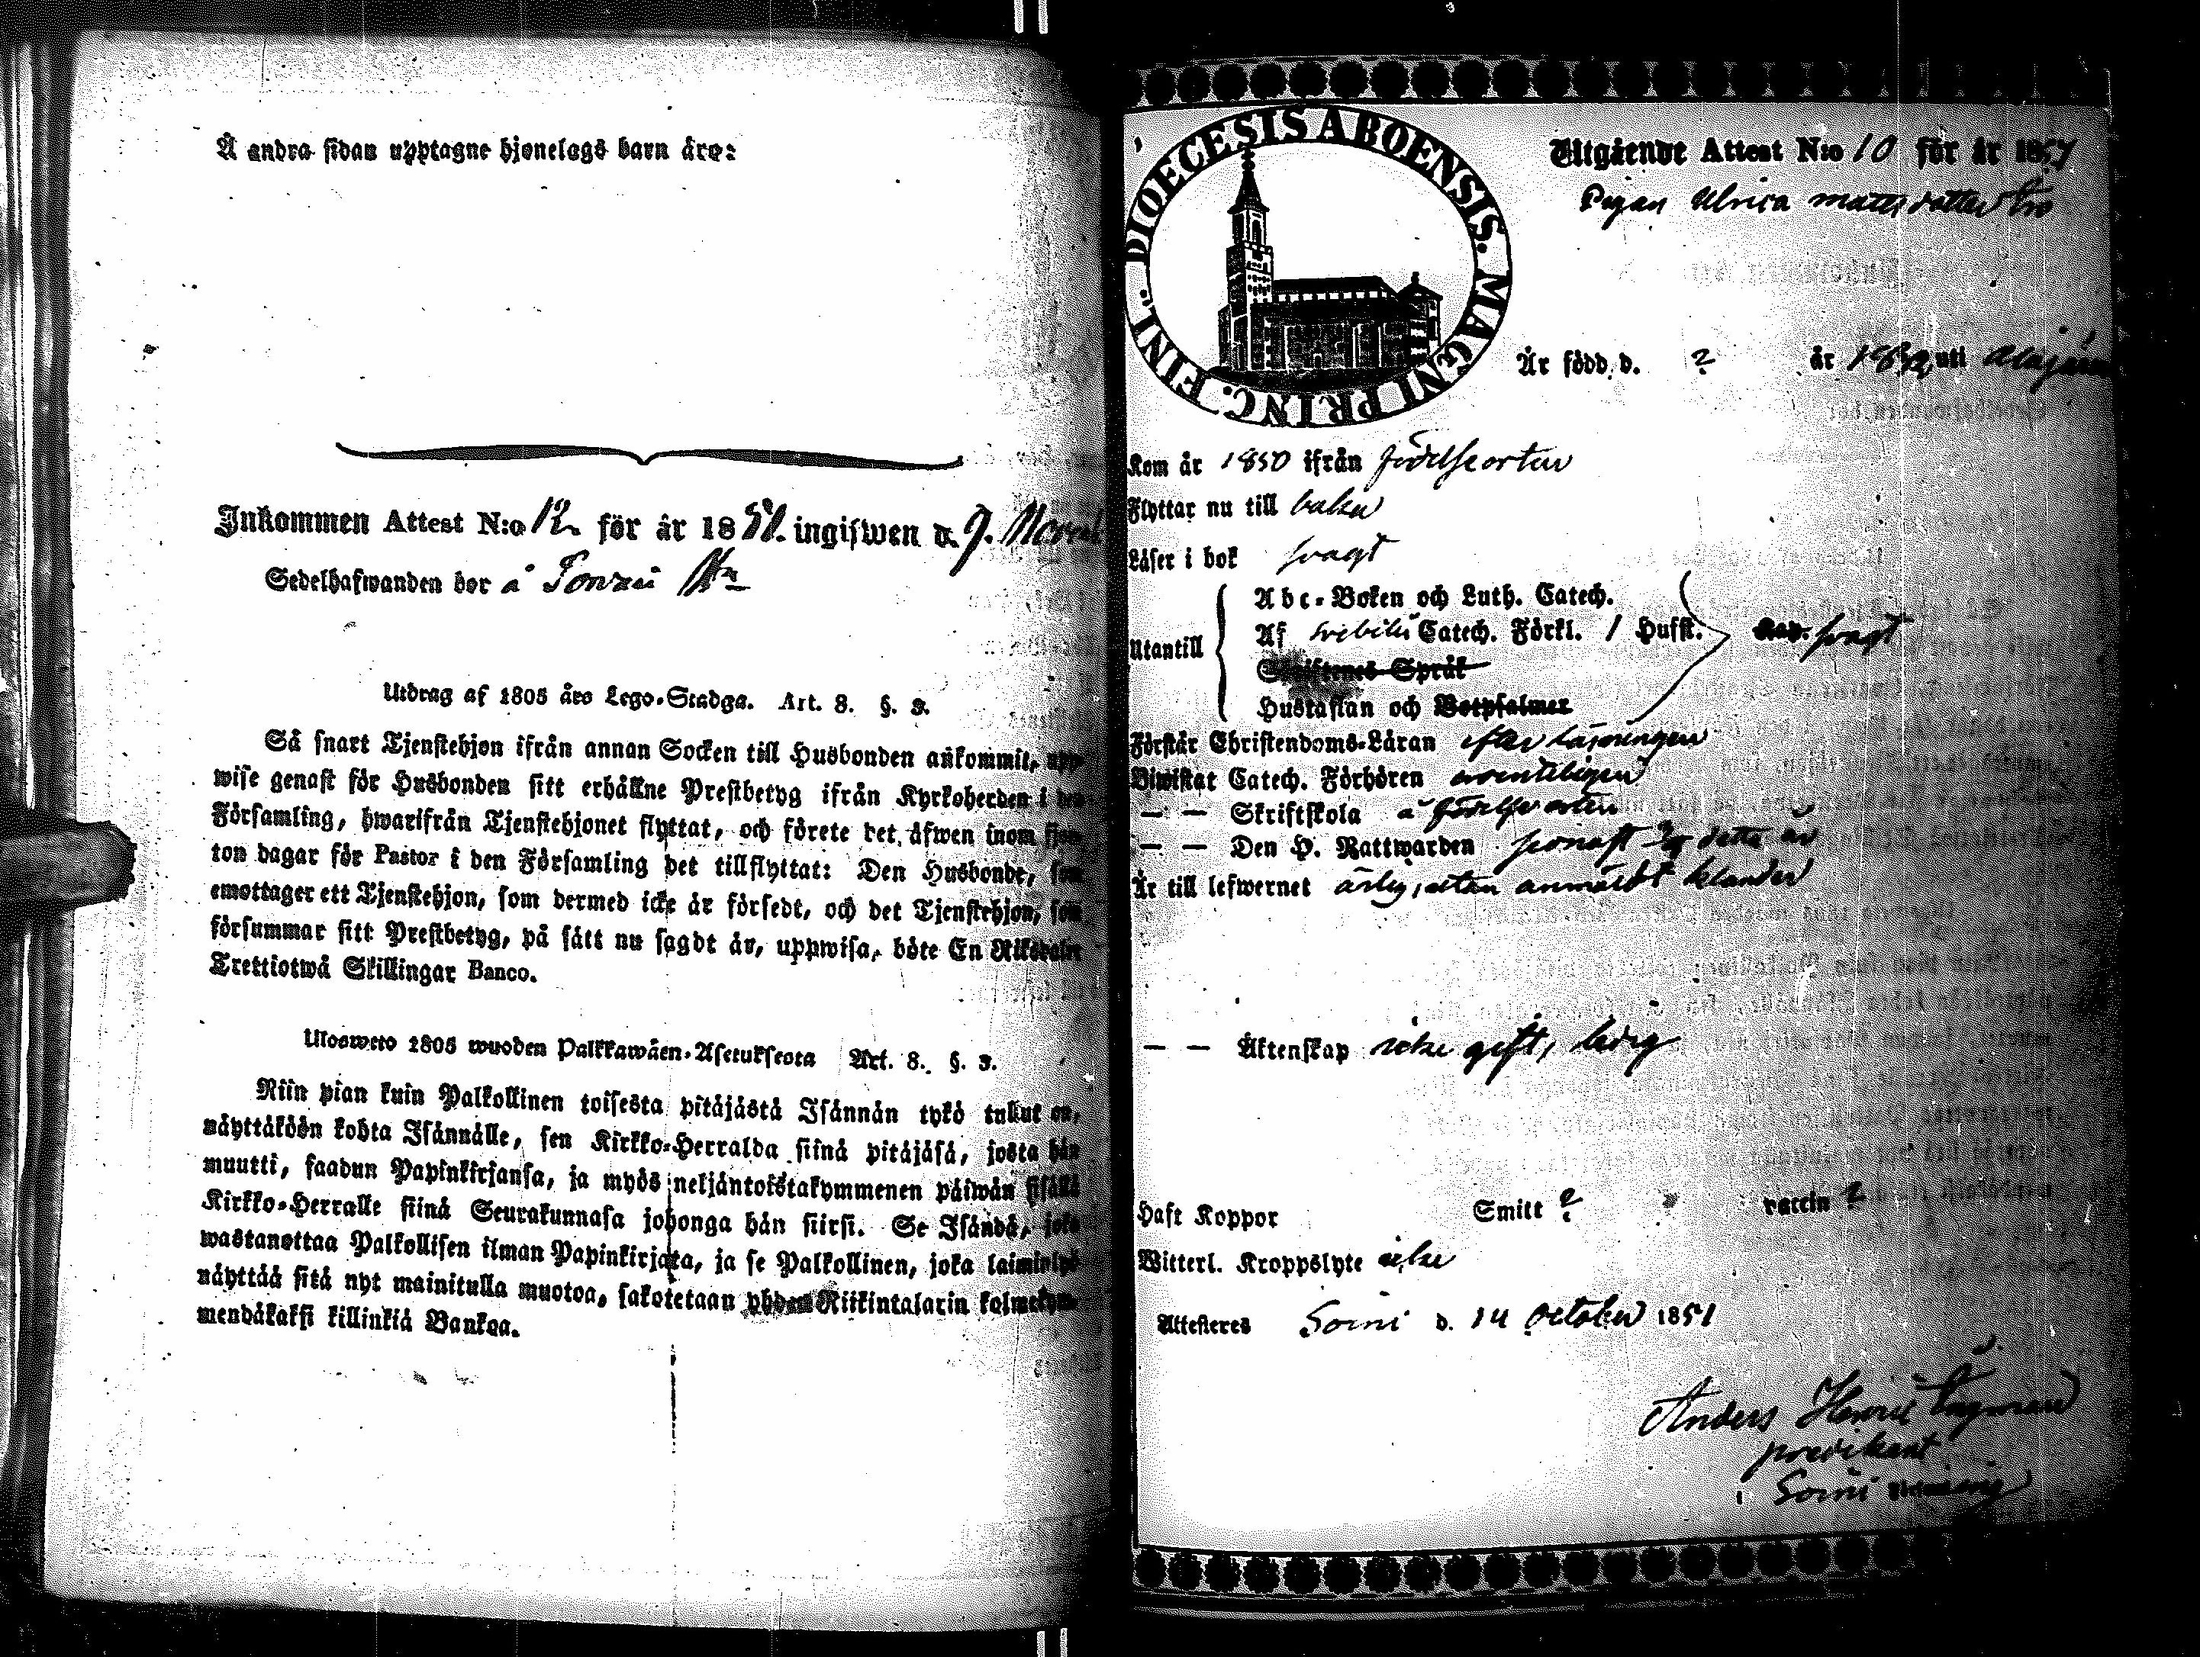 Å andra sidan upptagne hjonelags barn äro:
Inkommen Attest N:o 12 för år 1851. ingifwen d. 9.
Sedelhafwanden bor å
Utdrag af 1805 års Lego-Stadga. Art. 8. §. 3.
Så snart Tjenstehjon ifrån annan Socken till Husbonden ankommit, upp-
wise genast för Husbonden sitt erhållne Prestbetyg ifrån Kyrkoherden i den
Församling, hwarifrån Tjenstehjonet flyttat, och förete det äfwen inom fjor-
ton dagar för Pastor i den Församling det tillflyttat: Den Husbonde, som
emottager ett Tjenstehjon, som dermed icke är försedt, och det Tjenstehjon, som
försummar sitt Prestbetyg, på sätt nu sagdt är, uppwisa, böte En Riksdaler
Trettiotwå Skillingar Banco.
Ulosweto 1805 wuoden Palkkawäen-Asetuksesta Art. 8. §. 3.
Niin pian kuin Palkollinen toisesta pitäjästä Isännän tykö tullut on,
näyttäköön kohta Isännälle, sen Kirkko-Herralda siinä pitäjäsä, josta hän
muutti, saadun Papinkirjansa, ja myös neljäntoistakymmenen päiwän sisällä
Kirkko-Herralle siinä Seurakunnasa johonga hän siirsi. Se Isändä, joka
wastanottaa Palkollisen ilman Papinkirjata, ja se Palkollinen, joka laiminlyö
näyttää sitä nyt mainitulla muotoa, sakotetaan yhden Riikintalarin kolmekym-
mendäkaksi killinkiä Bankoa.
DIOECESIS ABOENSIS. MAGNI PRINC. FINL.
Utgående Attest N:o 10 för år 1851
Pigan Ulrica matts dotter
Är född d. ? år 1832 uti Alajärvi
Kom år 1850 ifrån födelseorten
Flyttar nu till baka
Läser i bok svagt
Utantill
Abc-Boken och Luth. Catech.
Af Svebilii Catech. Förkl. / Husft. svagt
Skriftenes Språk
Hustaflan och Botpsalmer
Förstår Christendoms-Läran efter läsningen
Biwistat Catech. Förhören ordenteligen
— — Skriftskola å födelseorten
— — Den H. Nattwarden senast detta år
Är till lefwernet ärlig, utan anmäldt klander
— — Äktenskap icke gift, ledig
Haft Koppor Smitt ? vaccin ?
Witterl. Kroppslyte icke
Attesteres Soini d. 14 October 1851
Anders Henric
predikant
i Soini